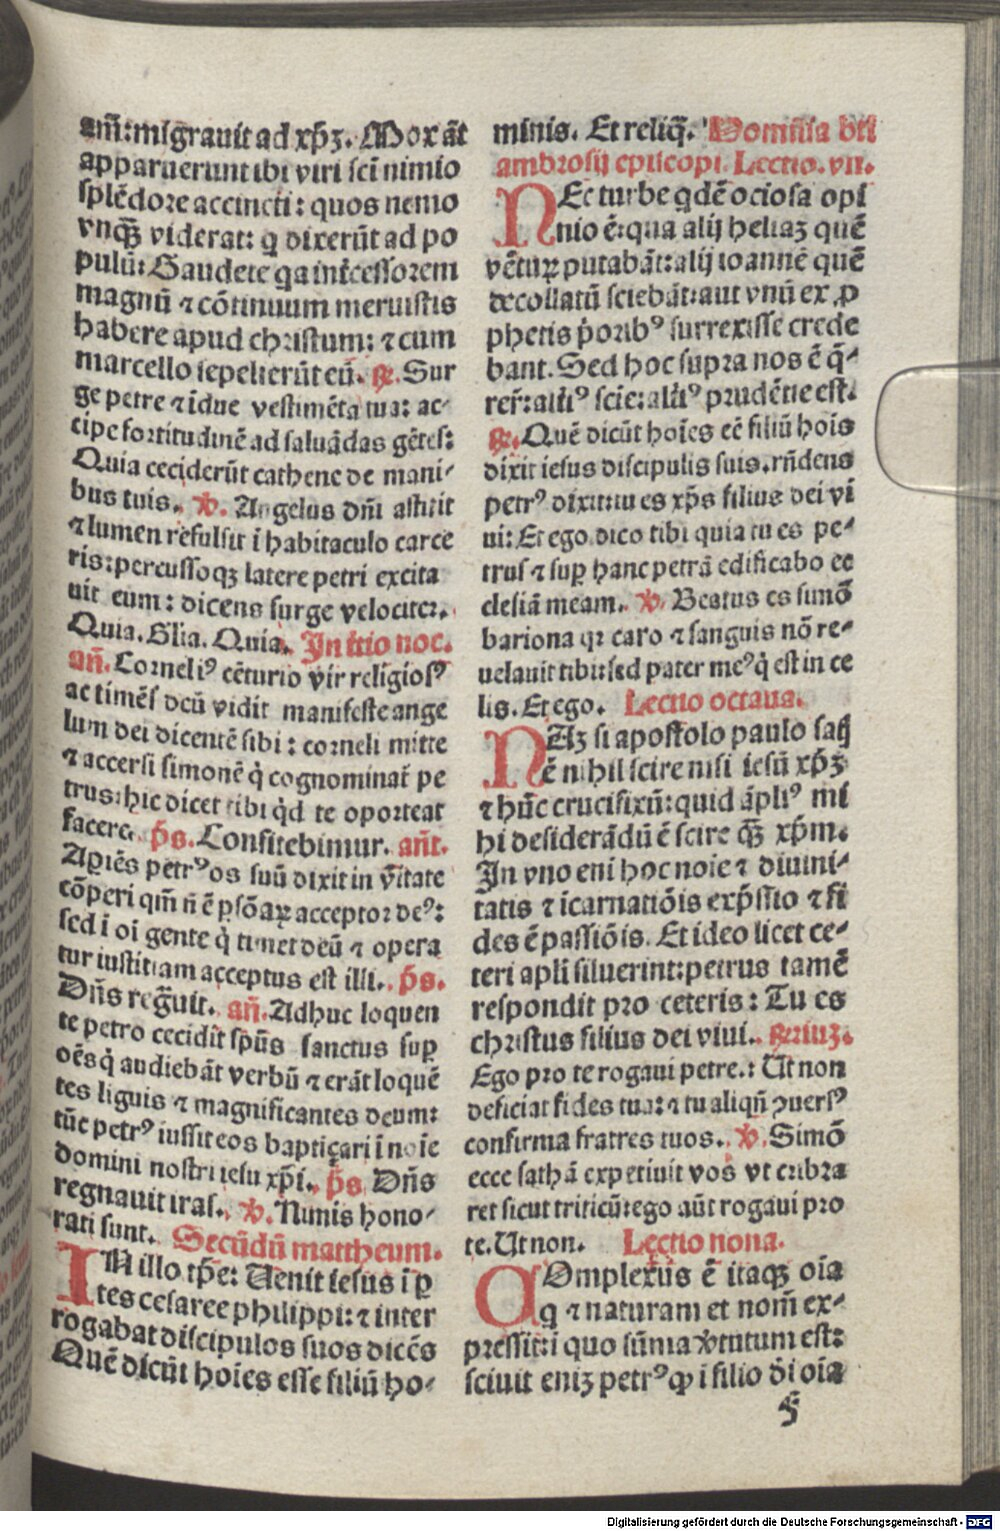 am̄:migrauit ad xp̄ꝫ. Mox āt
apparuerunt ibi viri sc̄i nimio
splēdore accincti: quos nemo
vnqꝫ̄ viderat: q̄ dixerūt ad po
pulū: Gaudete qa int̄cessorem
magnū ⁊ cōtinuum meruistis
habere apud christum: ⁊ cum
marcello sepelierūt eū. ℞. Sur
ge petre ⁊ idue vestimēta tua: ac⸗
cipe fortitudinē ad saluādas gētes:
Quia ceciderūt cathene de mani⸗
bus tuis. ℣. Angelus dn̄i astitit
⁊ lumen refulsit ī habitaculo carce
ris: percussoqꝫ latere petri excita
uit eum: dicens surge velociter.
Quia. Glia. Quia. In ītio noc.
an̄. Corneliꝰ cēturio vir religiosꝰ
ac timēs deū vidit manifeste ange
lum dei dicentē sibi: corneli mitte
⁊ accersi simonē q̇ cognominat̄ pe
trus: hic dicet tibi qd̄ te oporteat
facere. p̄s. Confitebimur. an̄t.
Apiēs petrꝰ os suū dixit in v̄itate
cōperi qm̄ n̄ ē ꝑsōaꝝ acceptor deꝰ:
sed ī oī gente q̇ timet deū ⁊ opera
tur iustitiam acceptus est illi. p̄s.
Dn̄s regn̄uit. an̄. Adhuc loquen
te petro cecidit sp̄ūs sanctus suꝑ
oēs q̇ audiebāt verbū ⁊ erāt loquē
tes liguis ⁊ magnificantes deum:
tūc petrꝰ iussit eos baptiçari ī noīe
domini nostri iesu xp̄i. p̄s Dn̄s
regnauit iras. ℣. Nimis hono⸗
rati sunt. Secūdū mattheum.
IN illo tp̄e: Uenit iesus ī ꝑ
tes cesaree philippi: ⁊ inter
rogabat discipulos suos dicēs
Quē dicūt hoīes esse filiū ho⸗
minis. Et reliq̄. Domīa bt̄i
ambrosij episcopi. Lectio. vii.
NEc turbe qdē ociosa opi
nio ē: qua alij heliaꝫ quē
vētuꝝ putabāt: alij ioannē quē
decollatū sciebāt: aut vnū ex ꝓ
phetis p̄oribꝰ surrexisse crede
bant. Sed hoc supra nos ē q̄⸗
rer̄: altiꝰ scie: altiꝰ prudētie est.
℞. Quē dicūt hoīes eē filiū hoīs
dixit iesus discipulis suis. rn̄dens
petrꝰ dixit: tu es xp̄s filius dei vi
ui: Et ego dico tibi quia tu es pe⸗
trus ⁊ suꝑ hanc petrā edificabo ec
clesiā meam. ℣. Beatus es simō
bariona qꝛ caro ⁊ sanguis nō re⸗
uelauit tibi: sed pater meꝰ q̇ est in ce
lis. Et ego. Lectio octaua.
NAꝫ si apostolo paulo satꝭ
ē nihil scire nisi iesū xp̄ꝫ
⁊ hūc crucifixū: quid āpliꝰ mi
hi desiderādū ē scire qꝫ̄ xp̄m.
In vno eni hoc noīe ⁊ diuini⸗
tatis ⁊ icarnatiōis exp̄ssio ⁊ fi
des ē passiōis. Et ideo licet ce⸗
teri apl̄i siluerint: petrus tamē
respondit pro ceteris: Tu es
christus filius dei viui. ℞riuꝫ.
Ego pro te rogaui petre.: Ut non
deficiat fides tua: ⁊ tu aliqn̄ ꝯuersꝰ
confirma fratres tuos. ℣. Simō
ecce sathā expetiuit vos vt cribra
ret sicut triticū: ego aūt rogaui pro
te. Ut non. Lectio nona.
COmplexus ē itaqꝫ oīa
q ⁊ naturam et nomē ex⸗
pressit: ī quo sūma v̄tutum est:
sciuit eniꝫ petrꝰ ꝙ ī filio dī oīa